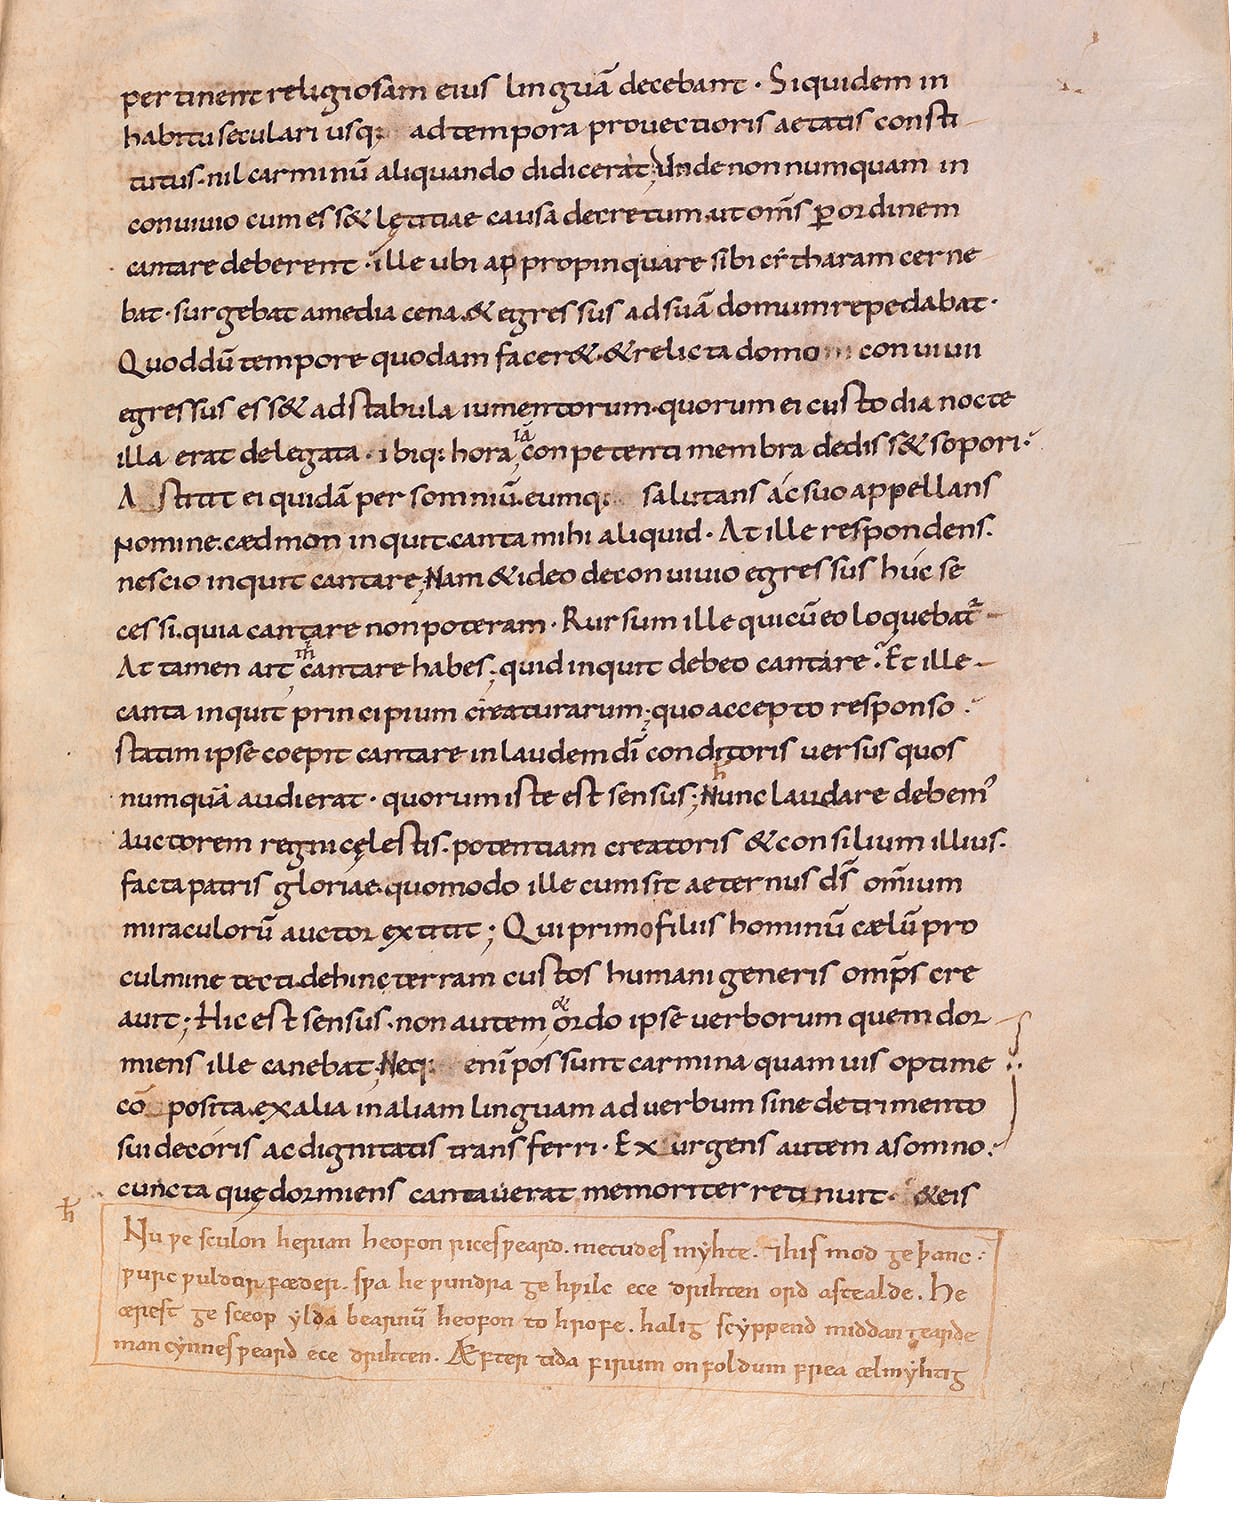 pertinent religiosam eius linguā decebant · Siquidem in
habitu seculari usq; ad tempora prouectioris aetatis consti
tutus · nil carminū aliquando didicerat; Unde nonnumquam in
conuiuio cum ess& lętitiae causa decretum · ut oms̄ ꝑ ordinem
cantare deberent · ille ubi appropinquare sibi citharam cerne
bat · surgebat amedia cena · & egressus adsuā domum repedabat ·
Quoddū tempore quodam facer& · & relicta domo conuiuii
egressus ess& ad stabula iumentorum · quorum ei custodia nocte
illa erat delegata · ibiq; hora
iā
conpetenti membra dediss& sopori ·
A stitit ei quidā per somniū · eumq; salutans ac suo appellans
Nomine · cædmon inquit · canta mihi aliquid · At ille respondens ·
nescio inquit cantare; Nam & ideo deconuiuio egressus huc se
cessi · quia cantare non poteram · Rursum ille qui cū eo loquebat᷑
At tamen ait
m̄
cantare habes; quid inquit debeo cantare · Et ille
canta inquit principium creaturarum; quo accepto responso ·
statim ipse coepit cantare in laudem dī conditoris uersus quos
numquā audierat · quorum iste est sensus; Nunc laudare debem᾽
auctorem regni cęlestis · potentiam creatoris & consilium illius ·
facta patris gloriae · quomodo ille cum sit aeternus ds̄ omīum
miraculorū auctor extitit; Qui primo filiis hominū cælū pro
culmine tecti · dehinc terram custos humani generis omps̄ cre
auit; Hic est sensus · non autem
&
ordo ipse uerborum quem dor
miens ille canebat; Neq; enī possunt carmina quamuis optime
cō posita · ex alia in aliam linguam ad uerbum sine detrimento
sui decoris ac dignitatis transferri · Exurgens autem asomno ·
cuncta quę dormiens cantauerat memoriter retinuit · & eis
Nu ƿe sculon herian heofon ricesƿeard . metudes myhte . ⁊his mod geþanc :
ƿurc ƿuldor fæder . sƿa he ƿundra gehƿilc ece drihten ord astealde . He
ærest ge sceop ylda bearnū heofon to hrofe . halig scyppend middangearde
mancynnes ƿeard ece drihten . Æfter tida firum on foldum frea ælmyhtig